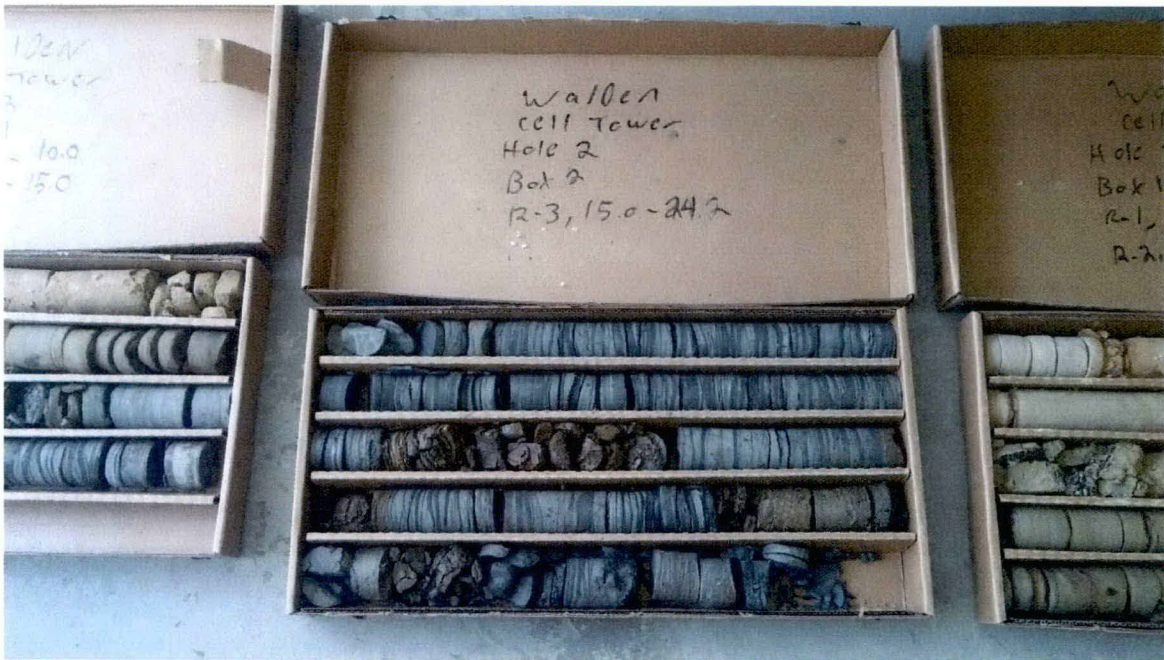 lden
Tower
- 10.0
- 15.0
Walden
Cell Tower
Hole 2
Box 2
R-3, 15.0-24.2
Wa
Cell
Hole
Box 1
R-1,
R-2,